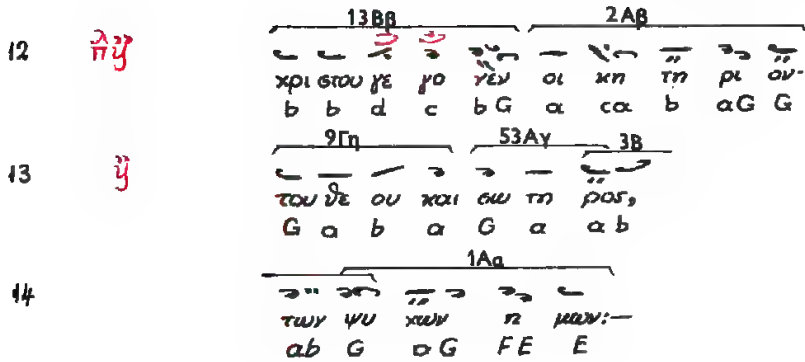 13Ββ 2Αβ
12
χρι στου γε γο γέν οι κη τη ρι ον-
b b d c b G a ca b aG G
9Γη 53Αγ 3Β
13
του θε ου και σω τη ρος,
G a b a G a a b
1Αα
14
των ψυ χων η μων:—
ab G aG FE E